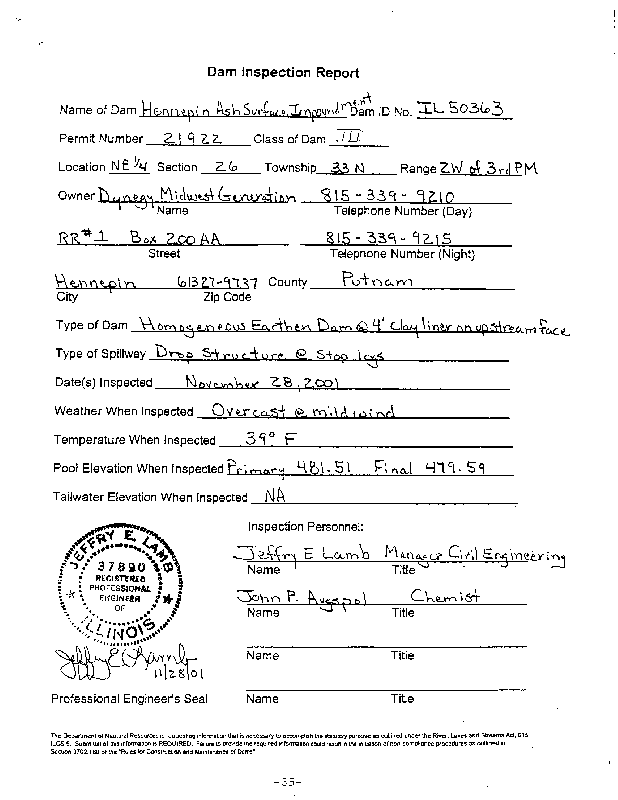 Dam Inspection Report
Name of Dam Hennepin Ash Surface Impoundment Dam ID No. IL 50363
Permit Number 21922 Class of Dam III
Location NE 1/4 Section 26 Township 33 N Range 2W of 3rd PM
Owner Dynegy Midwest Generation 815-339-9210
Name Telephone Number (Day)
RR#1 Box 200 AA 815-339-9215
Street Telephone Number (Night)
Hennepin 61327-9737 County Putnam
City Zip Code
Type of Dam Homogeneous Earthen Dam @ 4' Clay liner on upstream face
Type of Spillway Drop Structure @ Stop logs
Date(s) Inspected November 28, 2001
Weather When Inspected Overcast @ mild wind
Temperature When Inspected 39° F
Pool Elevation When Inspected Primary 481.51 Final 479.59
Tailwater Elevation When Inspected NA
Inspection Personnel:
Jeffry E Lamb Manager Civil Engineering
Name Title
John P. Augspol Chemist
Name Title
Name Title
Name Title
JEFFRY E. LAMB
37890
REGISTERED
PROFESSIONAL
ENGINEER
OF
ILLINOIS
Jeffry E Lamb
11/28/01
Professional Engineer's Seal
The Department of Natural Resources is requesting information that is necessary to accomplish the statutory purpose as outlined under the River, Lakes and Streams Act, 615
ILCS 5. Submittal of this information is REQUIRED. Failure to provide the required information could result in the initiation of non-compliance procedures as outlined in
Section 3702.160 of the "Rules for Construction and Maintenance of Dams".
-35-